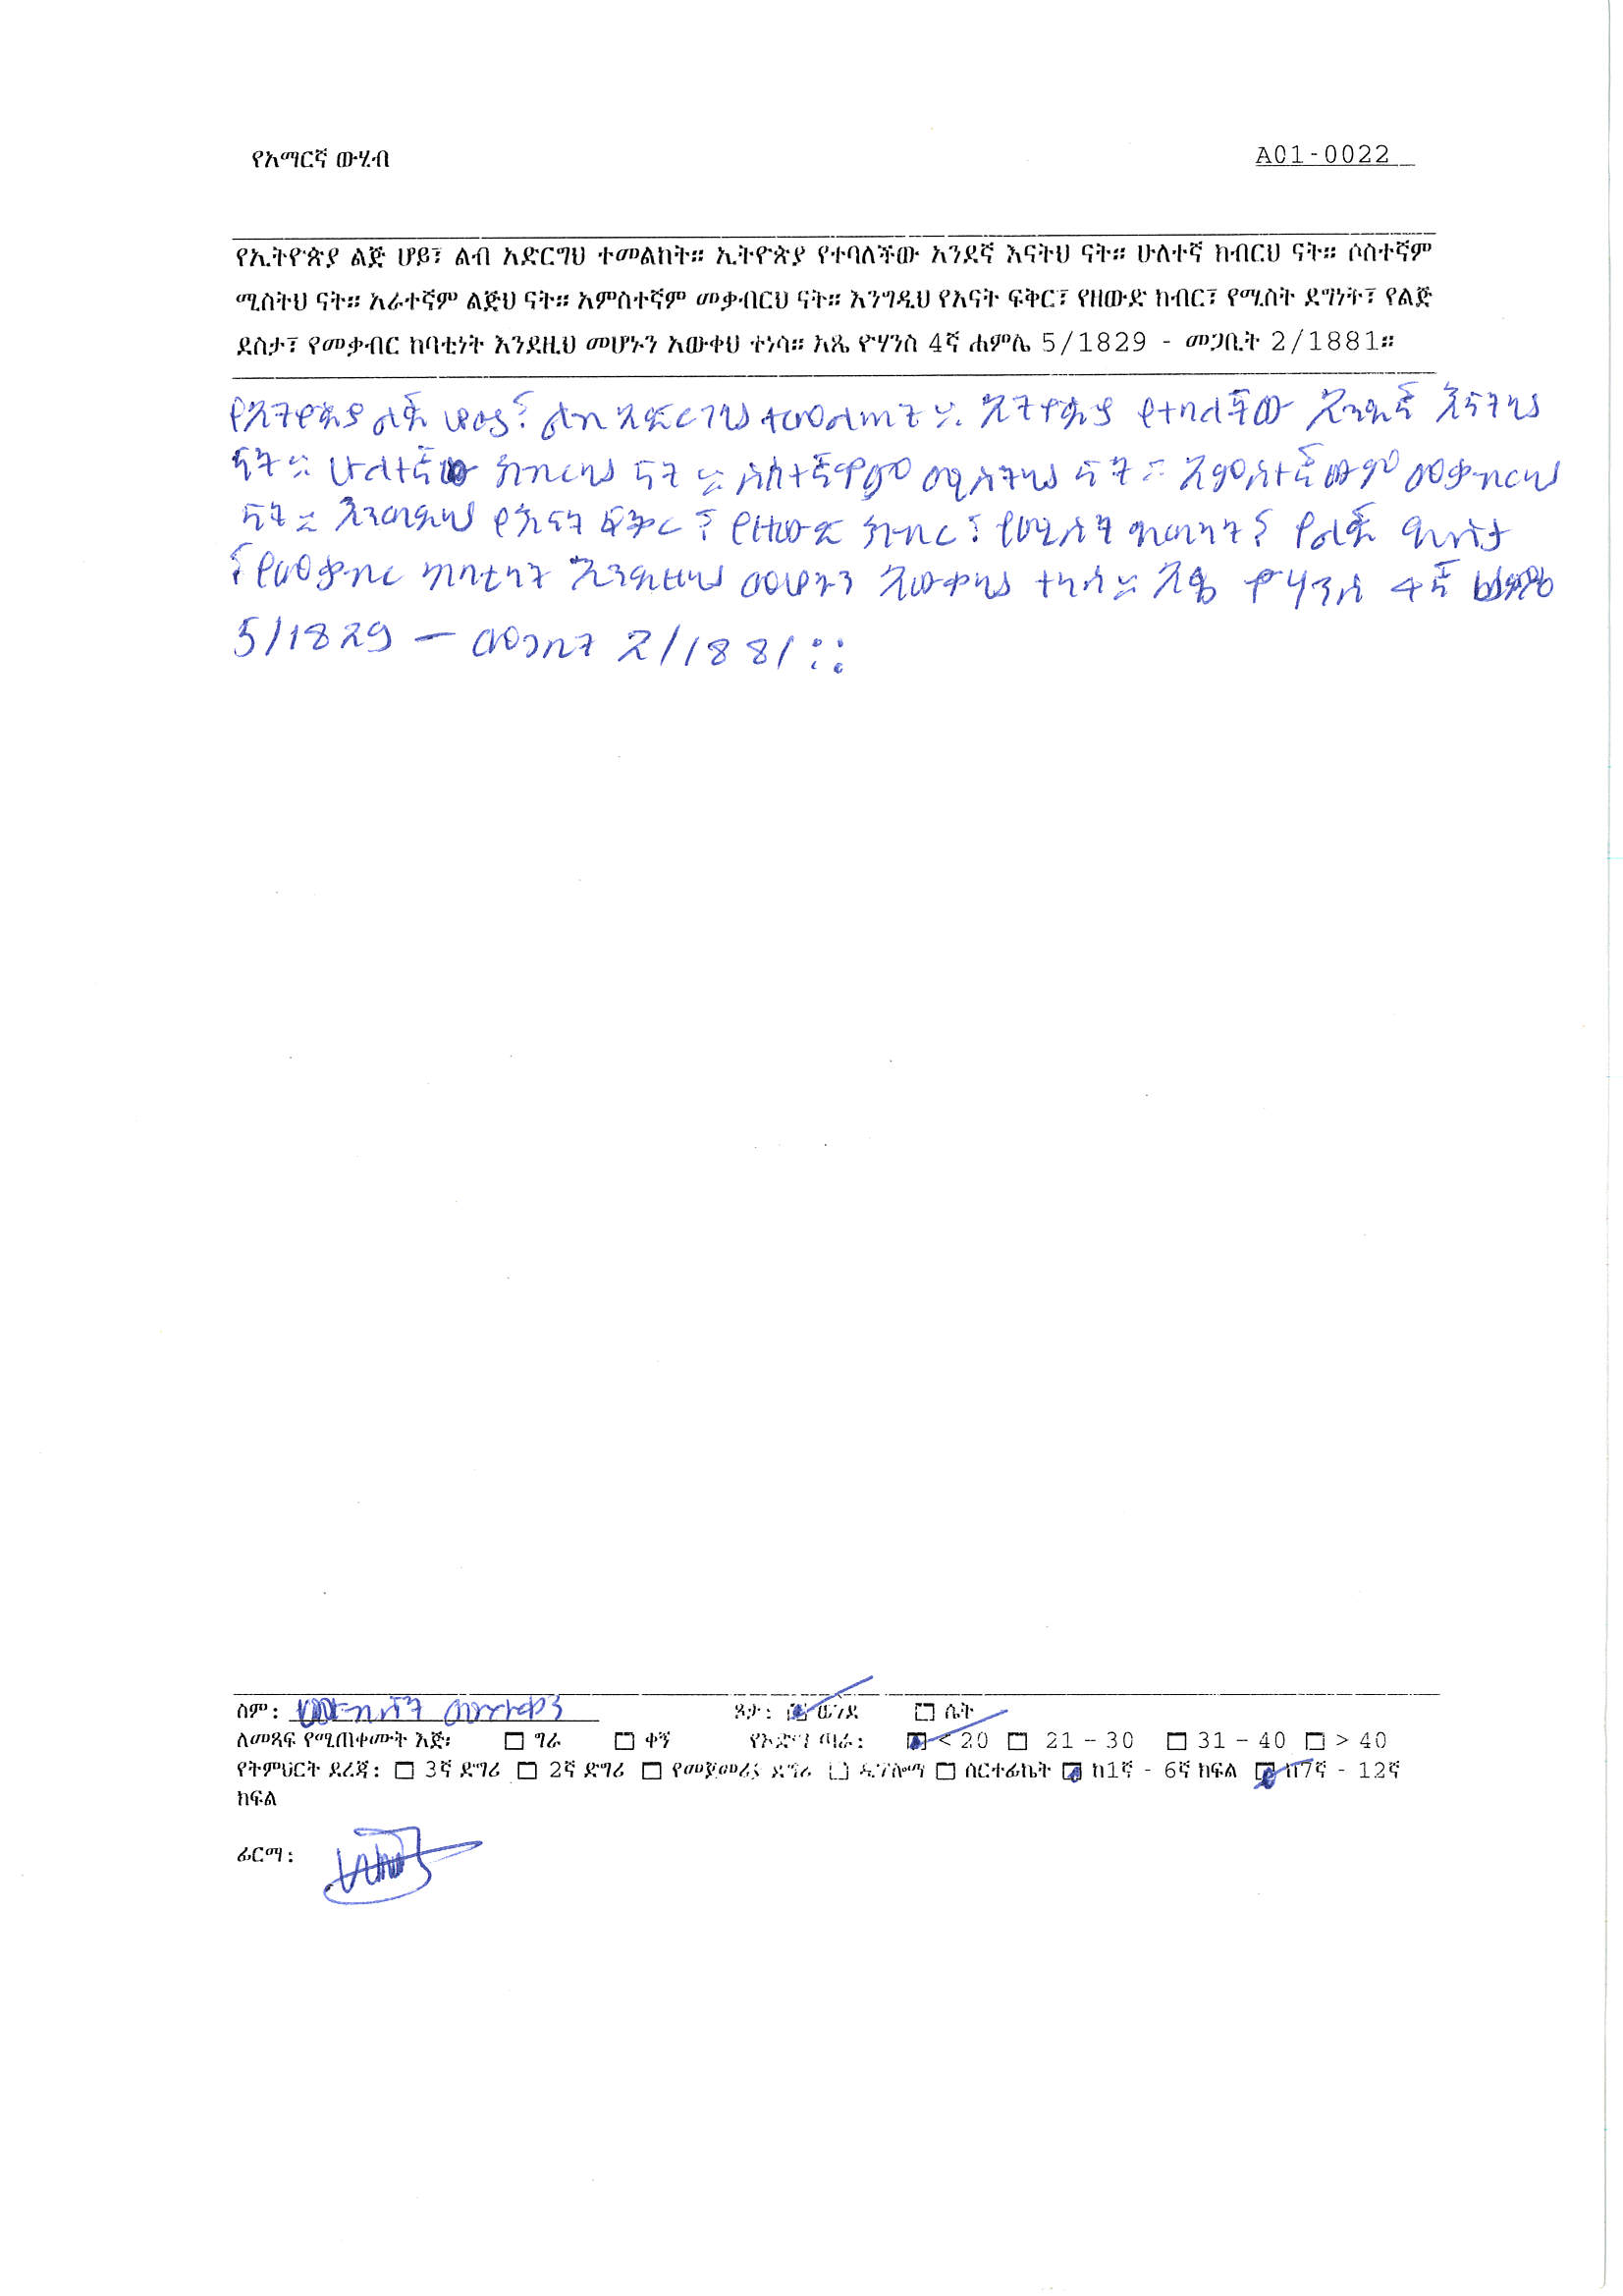 የአማርኛ ውሂብ A01-0022
የኢትዮጵያ ልጅ ሆይ፣ ልብ አድርግህ ተመልከት። ኢትዮጵያ የተባለችው አንደኛ እናትህ ናት። ሁለተኛ ክብርህ ናት። ሶስተኛም
ሚስትህ ናት። አራተኛም ልጅህ ናት። አምስተኛም መቃብርህ ናት። እንግዲህ የእናት ፍቅር፣ የዘውድ ክብር፣ የሚስት ደግነት፣ የልጅ
ደስታ፣ የመቃብር ከባቲነት እንደዚህ መሆኑን አውቀህ ተነሳ። አጼ ዮሃንስ 4ኛ ሐምሌ 5/1829 - መጋቢት 2/1881።
የኢትዮጵያ ልጅ ሆይ፣ ልብ አድርገህ ተመልከት ። ኢትዮጵያ የተባለችው አንዴኛ እናትህ
ናት ። ሁለተኛው ክብርህ ናት ። ሶስተኛዋም ሚስትህ ናት ። አምስተኛውም መቃብርህ
ናት ። እንግዲህ የእናት ፍቅር ፣ የዘውድ ክብር ፣ የሚስት ደግነት ፣ የልጅ ደስታ
፣ የመቃብር ከባቲነት እንደዚህ መሆኑን አውቀህ ተነሳ ። አፄ ዮሃንስ 4ኛ
5/1829 — መጋቢት 2/1881 ።
ስም: ጾታ: ወንድ ሴት
ለመጻፍ የሚጠቀሙት እጅ፡ ግራ ቀኝ የእድሜ ጣራ: < 20 21 – 30 31 – 40 > 40
የትምህርት ደረጃ: 3ኛ ድግሪ 2ኛ ድግሪ የመጀመሪያ ድግሪ ዲፕሎማ ሰርተፊኬት ከ1ኛ - 6ኛ ክፍል ከ7ኛ - 12ኛ
ክፍል
ፊርማ: